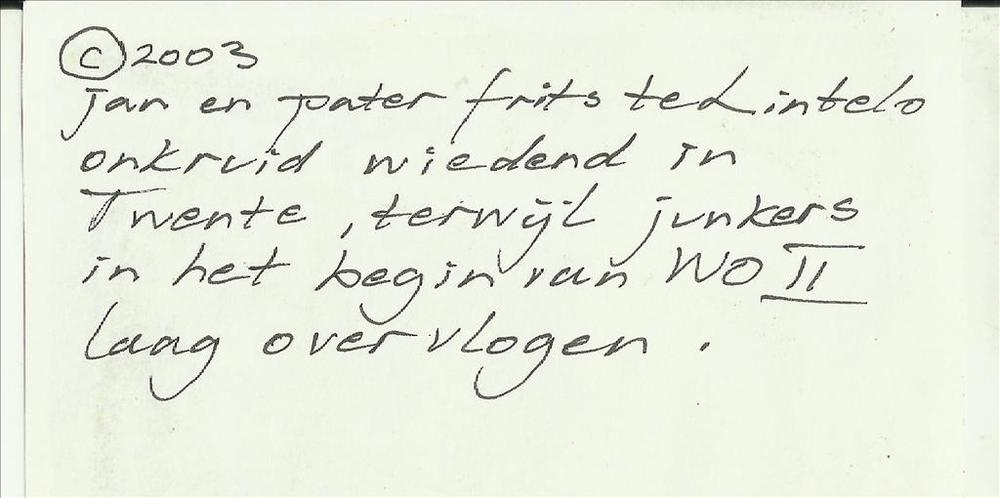 © 2003
jan en pater frits ted intelo
onkruid wiedend in
Twente, terwijl junkers
in het begin van WO II
laag over vlogen.